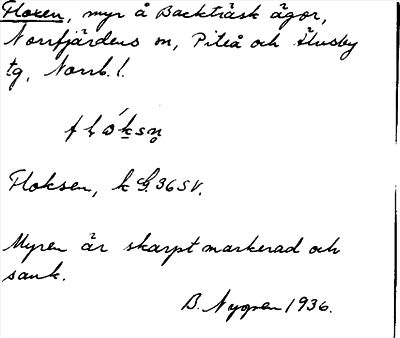 Floxen, myr å Backträsk ägor,
Norrfjärdens sn, Piteå och Älvsby
tg, Norrb. l.
Floksen, k G. 36 SV.
Myren är skarpt markerad och
sank.
B. Nygren 1936.